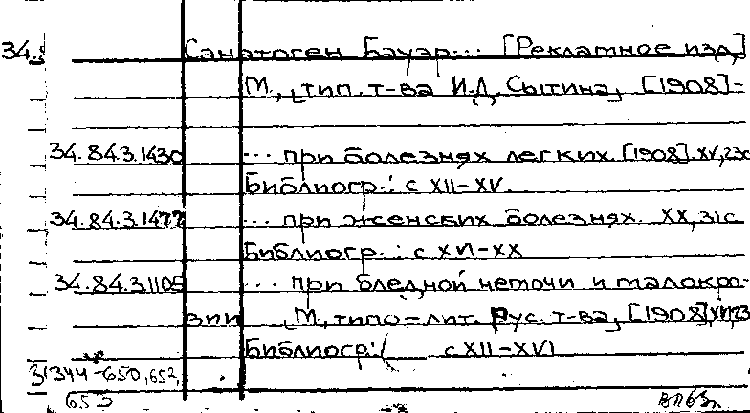 Санатоген Бауэр... [Рекламное изд.]
М., тип. т-ва И.Д. Сытина, [1908]-
34.84.3.1430 ... при болезнях легких. [1908]. XV, 23с
Библиогр.: с XII-XV.
34.84.3.1477 ... при женских болезнях. XX, 31с
Библиогр.: с XVI-XX
34.84.3.1105 ... при бледной немочи и малокро-
вии М., типо-лит. Рус. т-ва, [1908],
Библиогр.: с XII-XVI
344-650, 652,
653